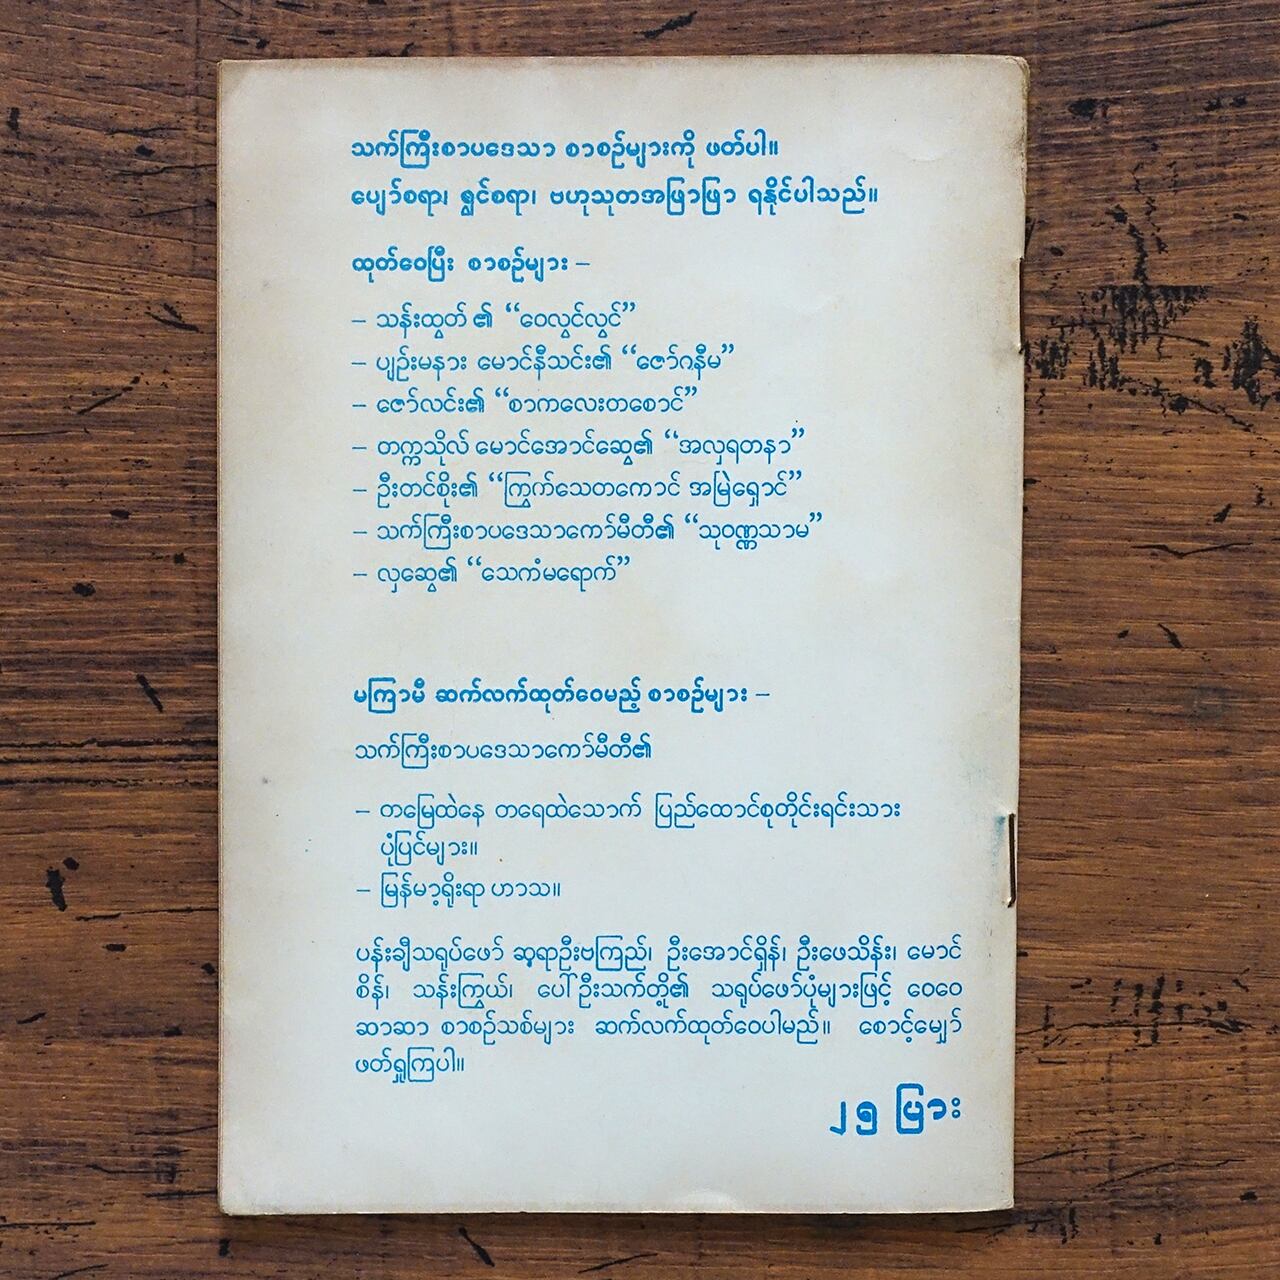 သက်ကြီးစာပဒေသာ စာစဉ်များကို ဖတ်ပါ။
ပျော်စရာ၊ ရွှင်စရာ၊ ဗဟုသုတအဖြာဖြာ ရနိုင်ပါသည်။
ထုတ်ဝေပြီး စာစဉ်များ –
– သန်းထွတ် ၏ “ဝေလွင်လွင်”
– ပျဉ်းမနား မောင်နီသင်း၏ “ဇော်ဂနီမ”
– ဇော်လင်း၏ “စာကလေးတစောင်”
– တက္ကသိုလ် မောင်အောင်ဆွေ၏ “အလှရတနာ”
– ဦးတင်စိုး၏ “ကြွက်သေတကောင် အမြဲရှောင်”
– သက်ကြီးစာပဒေသာကော်မီတီ၏ “သုဝဏ္ဏသာမ”
– လှဆွေ၏ “သေကံမရောက်”
မကြာမီ ဆက်လက်ထုတ်ဝေမည့် စာစဉ်များ –
သက်ကြီးစာပဒေသာကော်မီတီ၏
– တမြေထဲနေ တရေထဲသောက် ပြည်ထောင်စုတိုင်းရင်းသား
ပုံပြင်များ။
– မြန်မာ့ရိုးရာ ဟာသ။
ပန်းချီသရုပ်ဖော် ဆရာဦးဗကြည်၊ ဦးအောင်ရှိန်၊ ဦးဖေသိန်း၊ မောင်
စိန်၊ သန်းကြွယ်၊ ပေါ်ဦးသက်တို့၏ သရုပ်ဖော်ပုံများဖြင့် ဝေဝေ
ဆာဆာ စာစဉ်သစ်များ ဆက်လက်ထုတ်ဝေပါမည်။ စောင့်မျှော်
ဖတ်ရှုကြပါ။
၂၅ ပြား